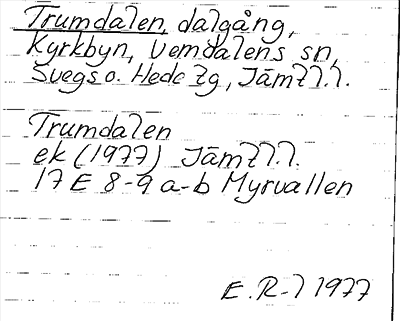 Trumdalen, dalgång,
Kyrkbyn, Vemdalens sn,
Svegs o. Hede tg, Jämtl.l.
Trumdalen
ek (1977) Jämtl.l.
17 E 8-9 a-b Myrvallen
E.R-l 1977